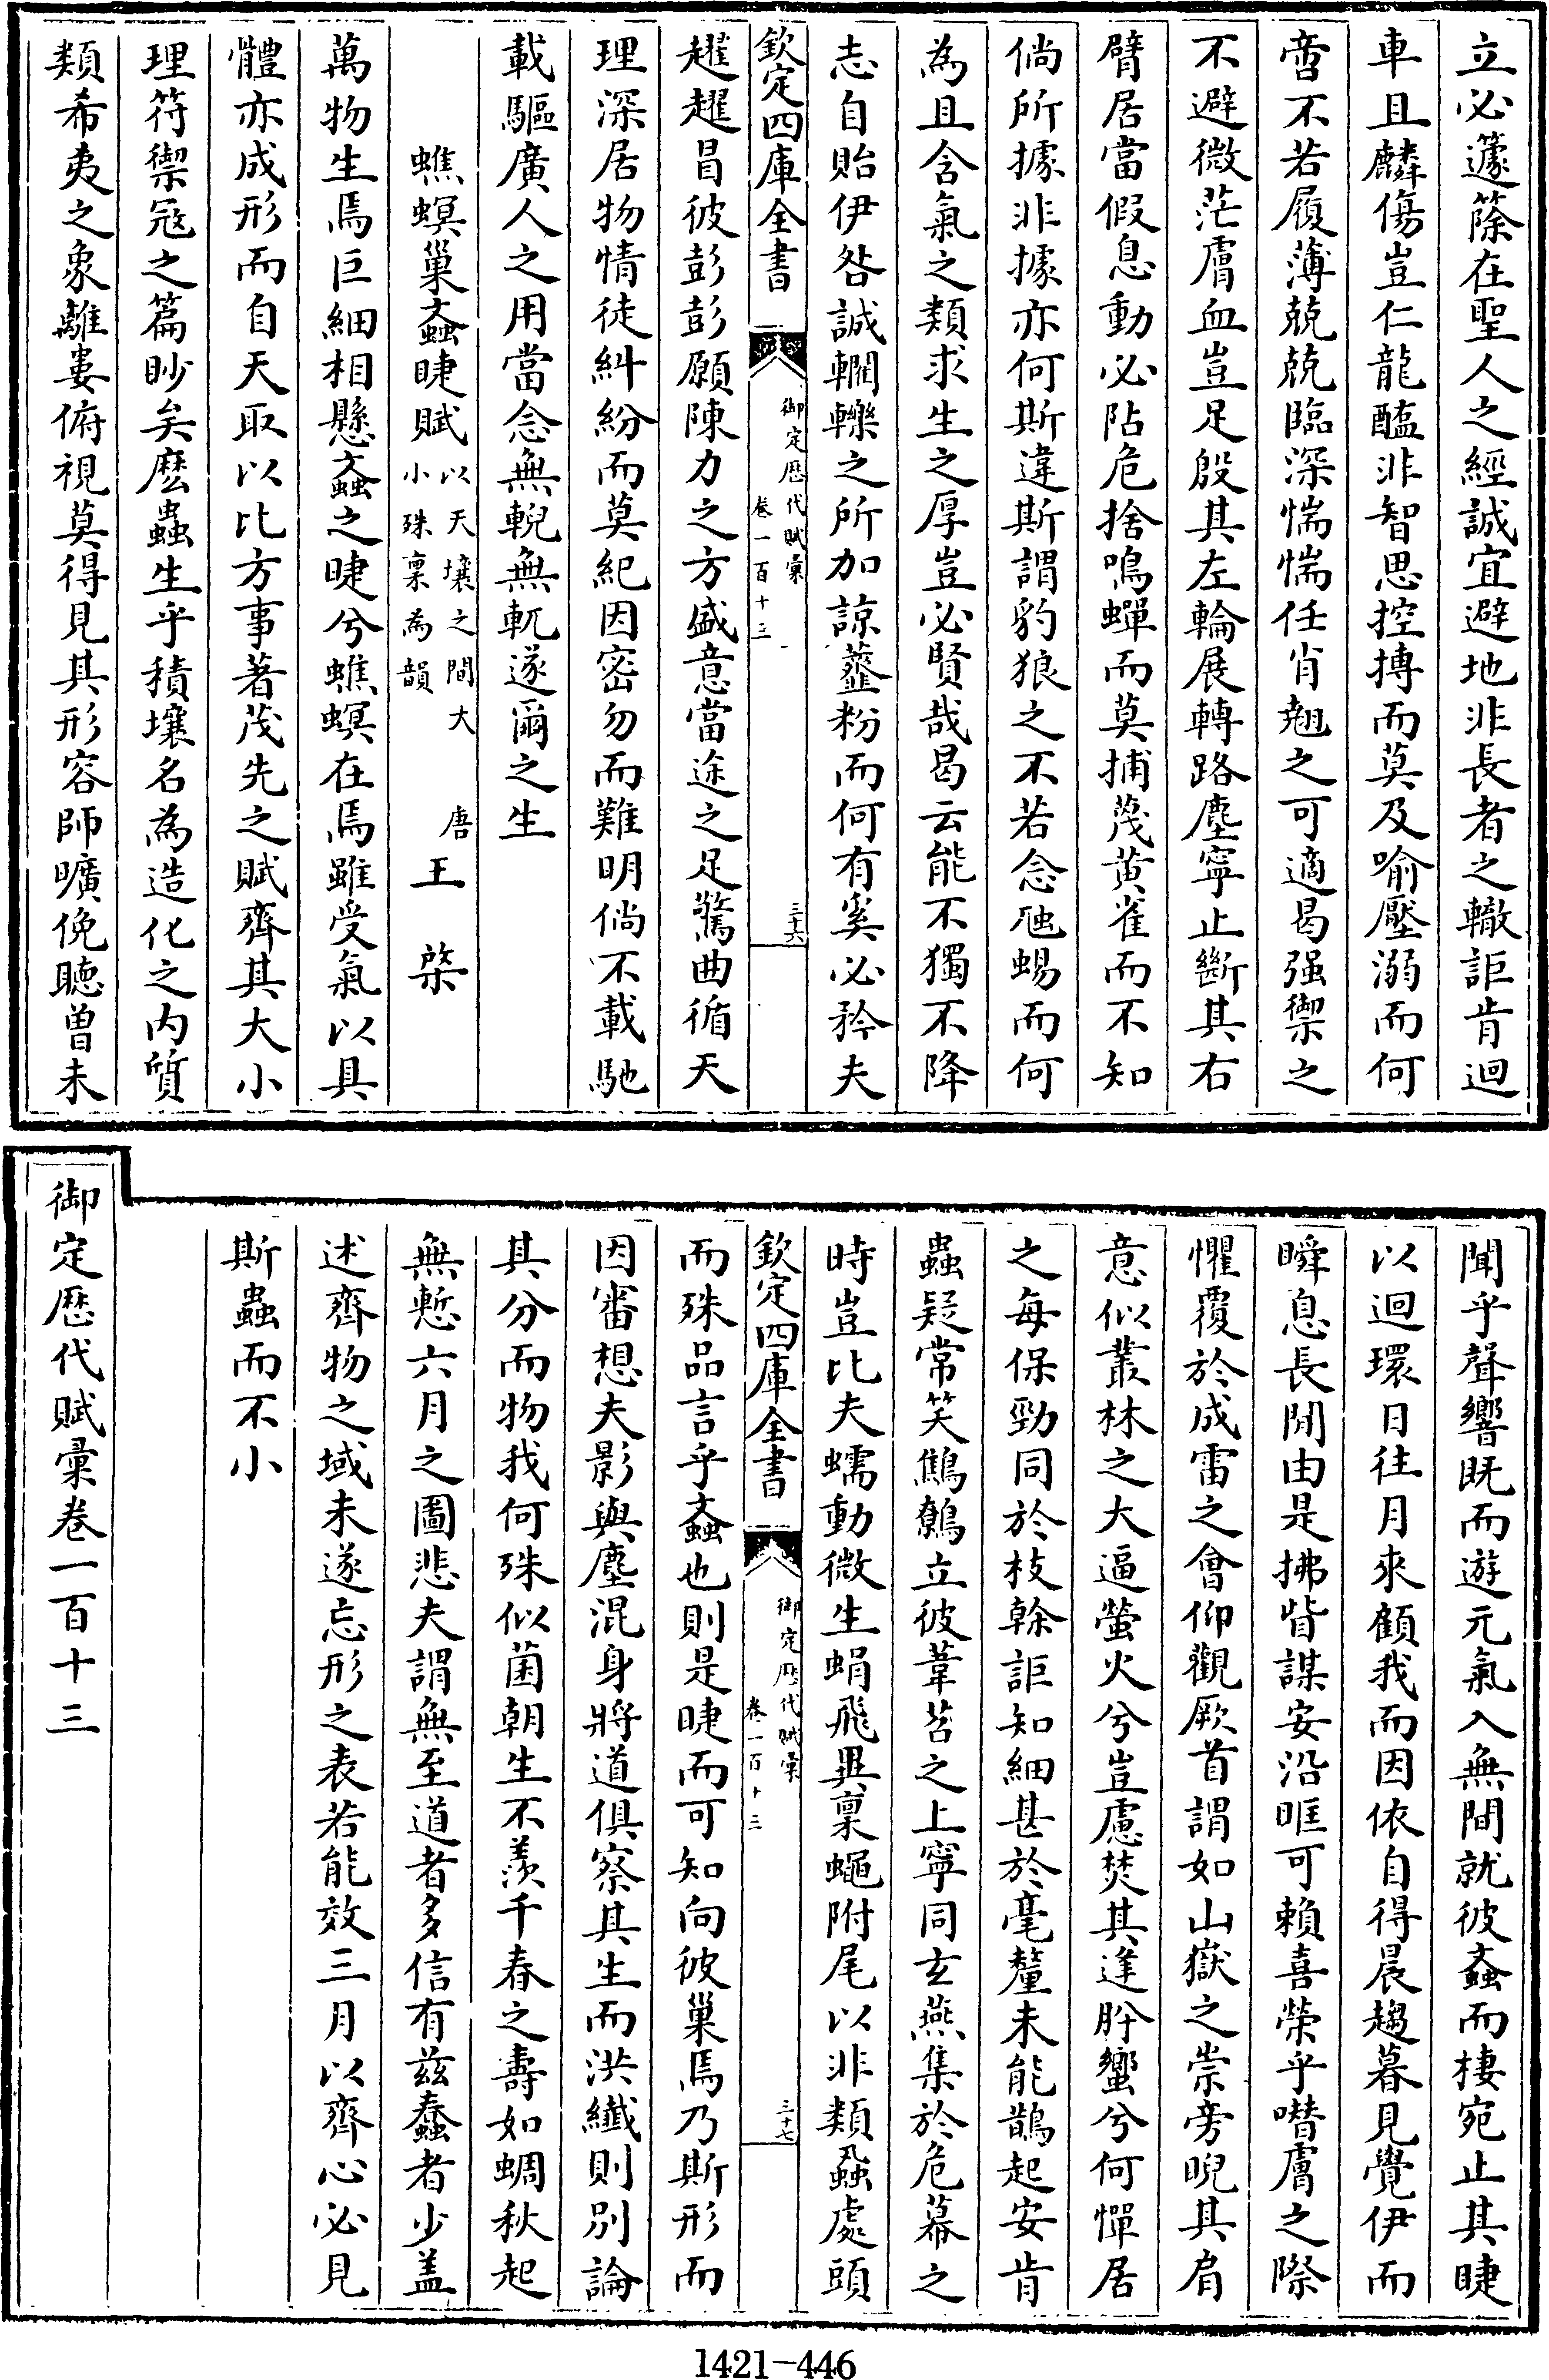 立必籧篨在聖人之經誠宜避地非長者之轍詎肯迴
車且麟傷豈仁龍醢非智思控搏而莫及喻壓溺而何
啻不若履薄兢兢臨深惴惴任肖翹之可適曷强禦之
不避微茫膚血豈足殷其左輪展轉路塵寧止斷其右
臂居當假息動必阽危捨鳴蟬而莫捕蔑黄雀而不知
倘所據非據亦何斯違斯謂豹狼之不若念虺蜴而何
為且含氣之類求生之厚豈必賢哉曷云能不獨不降
志自貽伊咎誠轥轢之所加諒虀粉而何有奚必矜夫
欽定四庫全書
御定歴代賦彙
卷一百十三
三十六
趯趯冒彼彭彭願陳力之方盛意當途之足驚曲循天
理深居物情徒糾紛而莫紀因密勿而難明倘不載馳
載驅廣人之用當念無輗無軏遂爾之生
蟭螟巢蟁睫賦以天壤之間大
小殊禀為韻
唐王棨
萬物生焉巨細相懸蟁之睫兮蟭螟在焉雖受氣以具
體亦成形而自天取以比方事著茂先之賦齊其大小
理符禦冦之篇眇矣麽蟲生乎積壤名為造化之内質
類希夷之象離婁俯視莫得見其形容師曠俛聽曾未
聞乎聲響既而遊元氣入無間就彼蟁而棲宛止其睫
以迴環日往月來顧我而因依自得晨趨暮見覺伊而
瞬息長閒由是拂眥謀安沿眶可賴喜榮乎噆膚之際
懼覆於成雷之會仰觀厥首謂如山嶽之崇旁睨其眉
意似叢林之大逼螢火兮豈慮焚其逢肸蠁兮何憚居
之每保勁同於枝榦詎知細甚於毫釐未能鵲起安肯
蟲疑常笑鷦鷯立彼葦苕之上寧同玄燕集於危幕之
時豈比夫蠕動微生蜎飛異稟蠅附尾以非類蝨處頭
欽定四庫全書
御定歴代賦彙
卷一百十三
三十七
而殊品言乎蟁也則是睫而可知向彼巢焉乃斯形而
因審想夫影與塵混身將道俱察其生而洪纖則別論
其分而物我何殊似菌朝生不羨千春之壽如蜩秋起
無慙六月之圖悲夫謂無至道者多信有兹蠢者少盖
述齊物之域未遂忘形之表若能效三月以齊心必見
斯蟲而不小
御定歴代賦彙卷一百十三
1421-446